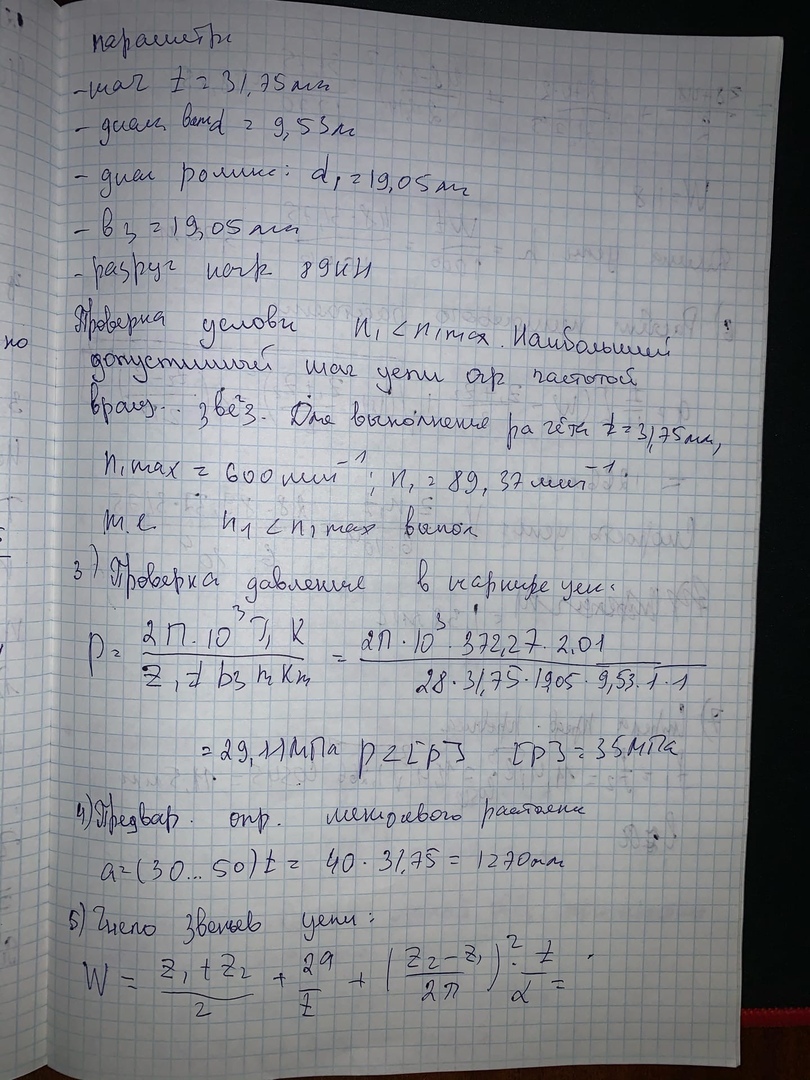 параметры
- шаг t = 31,75мм
- диам. вал d = 9,53м
- диам ролика: d₁ = 19,05мм
- b₃ = 19,05мм
- разруш нагр 89кН
Проверка услови n₁ < n₁max. Наибольший
допустимый шаг цепи огр. частотой
вращ.. звёз. Для выполнения расчёта t = 31,75мм,
n₁max = 600 мин⁻¹; n₁ = 89,37 мин⁻¹
т.е. n₁ < n₁max выпол
3) Проверка давления в шарнире цепи.
p = (2П·10³ T₁ K) / (z₁ t b₃ m Kₘ) = (2П·10³·372,27·2,01) / (28·31,75·19,05·9,53·1·1)
= 29,11МПа p < [p] [p] = 35МПа
4) Предвар. опр. межосевого растояни
a = (30...50)t = 40·31,75 = 1270мм
5) Число звеньев цепи:
W = (z₁ + z₂)/2 + 2a/t + ((z₂ - z₁)/2π)² · t/a =